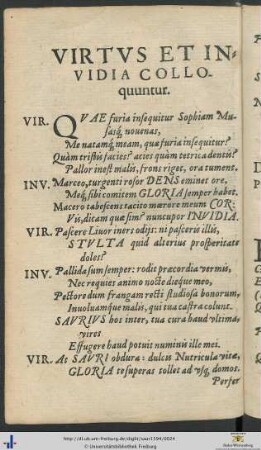 VIRTVS ET IN-
VIDIA COLLO-
quuntur.
VIR. QVAE furia insequitur Sophiam Mu-
sasq́, nouenas,
Me natamq́, meam, quæ furia insequitur?
Quàm tristis facies? acies quàm tetrica dentis?
Pallor inest malis, frons riget, ora tument.
INV. Marceo, turgenti rosor DENS eminet ore.
Meq́, sibi comitem GLORIA semper habet.
Macero tabescens tacito mœrore meum COR:
Vis, ditam quæ sim? nuncupor INVIDIA.
VIR. Pascere Liuor iners odijs: ni pasceris illis,
STVLTA quid alterius prosperitate
dolet?
INV. Pallida sum semper: rodit præcordia vermis,
Nec requies animo nocte dieque meo,
Pectore dum frangam recti studiosa bonorum,
Inuoluamque malis, qui tua castra colunt.
SAVRIVS hos inter, tua cura haud vltima,
vires
Effugere haud potuit numinis ille mei.
VIR. At SAVRI obdura: dulcis Nutricula vitæ,
GLORIA te superas tollet ad vsq́, domos.
Perfer
http://dl.ub.uni-freiburg.de/diglit/
© Universitätsbibliothek Freiburg